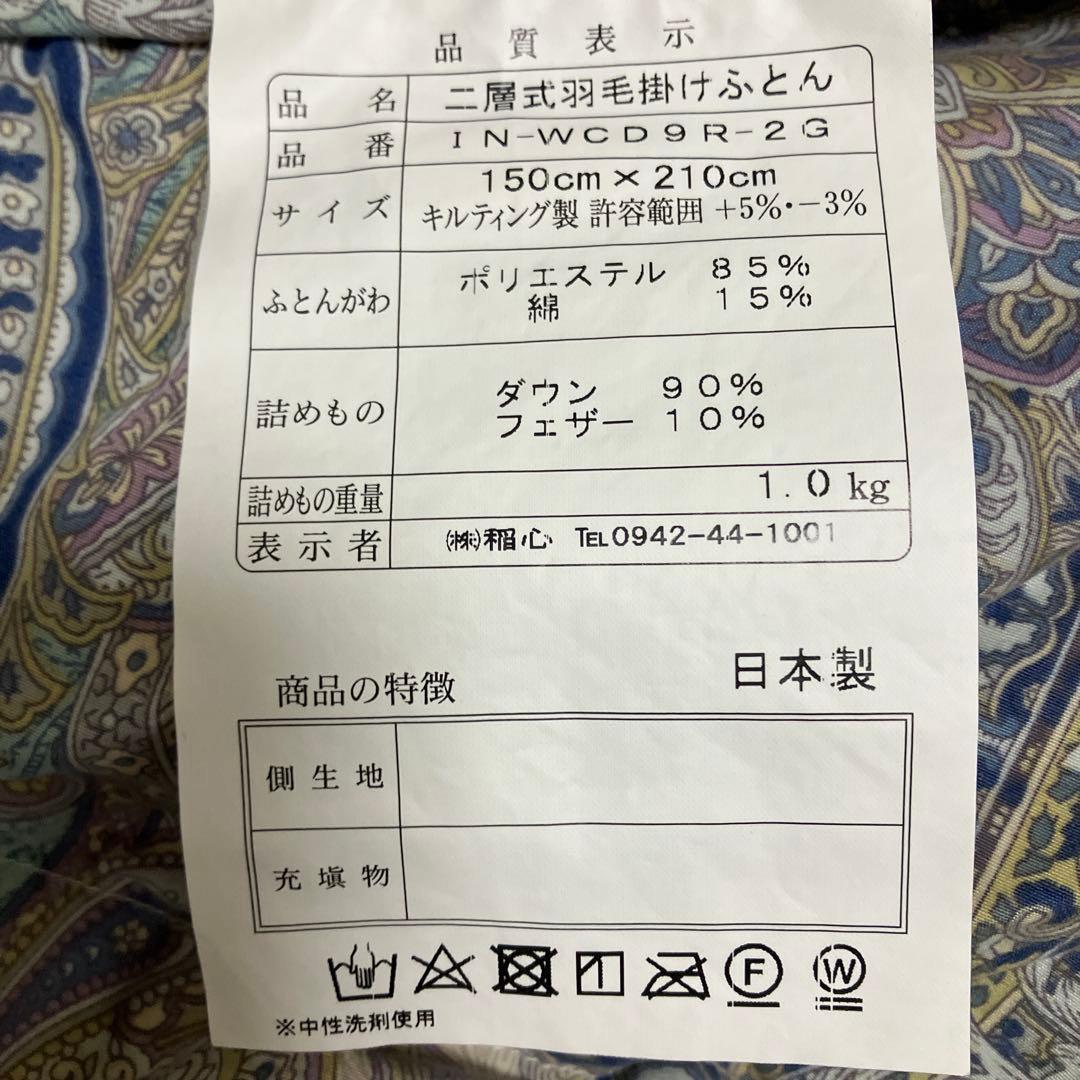 品質表示
品名 二層式羽毛掛けふとん
品番 IN-WCD9R-2G
サイズ 150cm×210cm
キルティング製 許容範囲 +5%・-3%
ふとんがわ ポリエステル 85%
綿 15%
詰めもの ダウン 90%
フェザー 10%
詰めもの重量 1.0kg
表示者 ㈱稲心 TEL0942-44-1001
日本製
商品の特徴
側生地
充塡物
F W
※中性洗剤使用